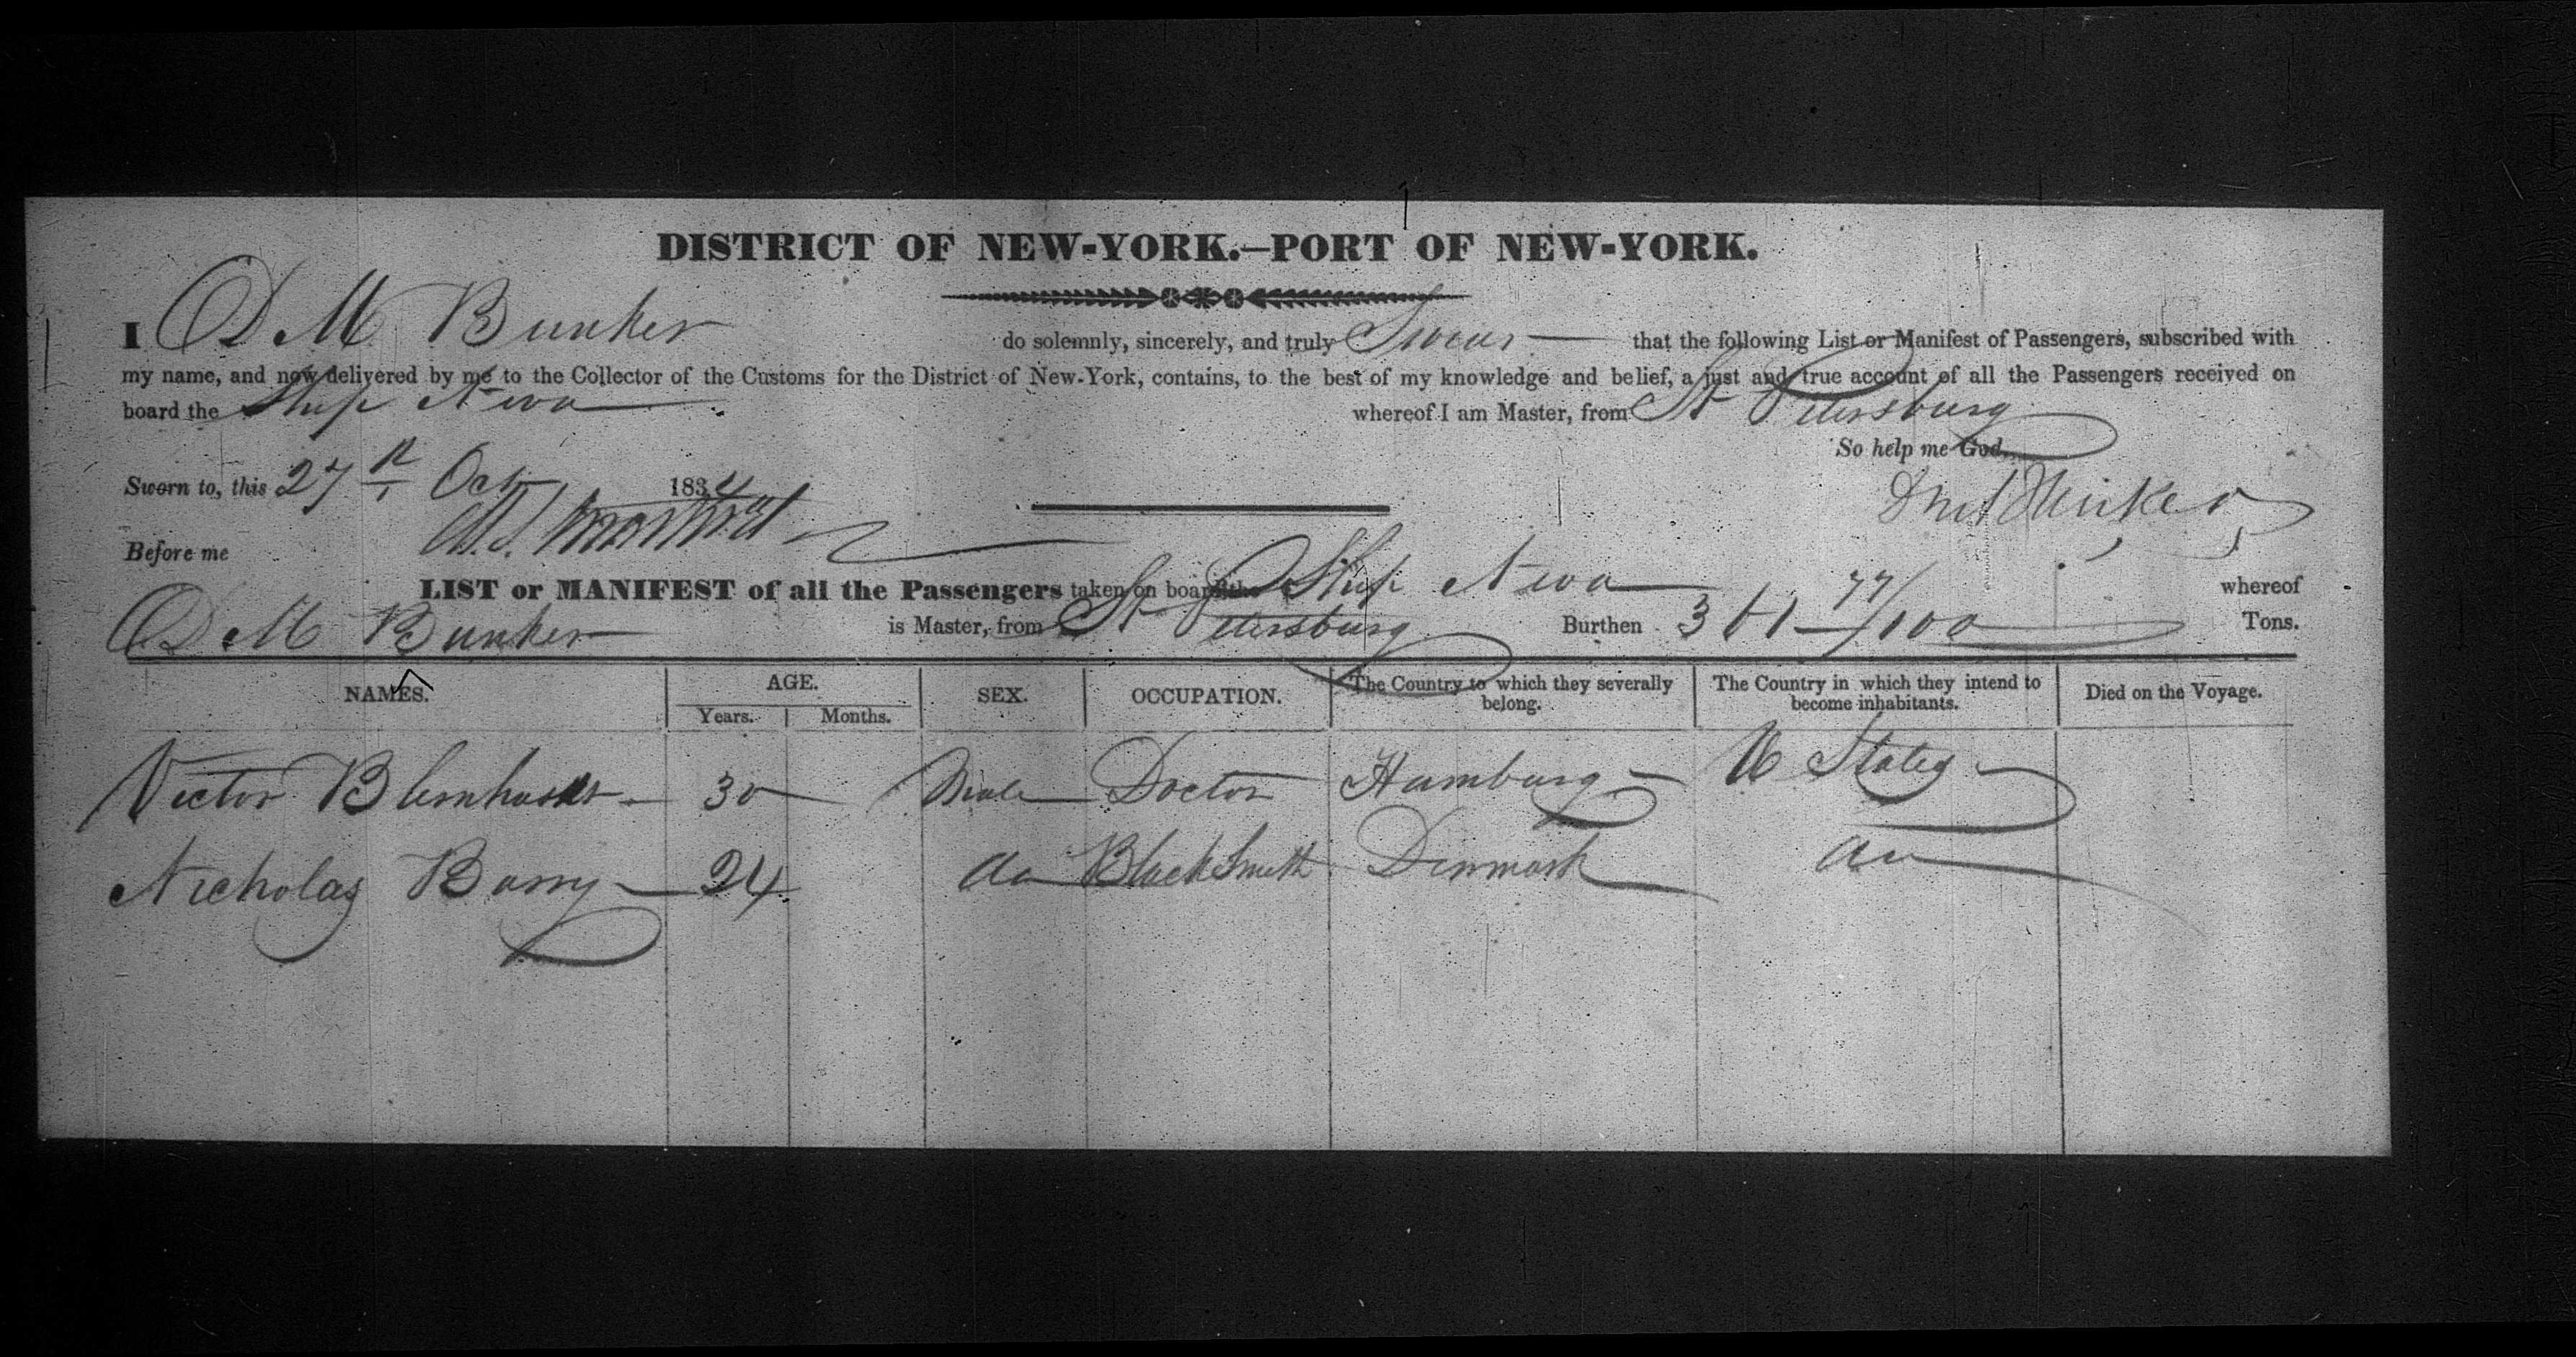 DISTRICT OF NEW-YORK.—PORT OF NEW-YORK.
I D M Bunker do solemnly, sincerely, and truly Swear that the following List or Manifest of Passengers, subscribed with
my name, and now delivered by me to the Collector of the Customs for the District of New-York, contains, to the best of my knowledge and belief, a just and true account of all the Passengers received on
board the Ship Neva whereof I am Master, from St Petersburg
So help me God.
Sworn to, this 27th Oct 1834
Before me
LIST or MANIFEST of all the Passengers taken on board the Ship Neva whereof
D M Bunker is Master, from St Petersburg Burthen 77/100 Tons.
NAMES. AGE. SEX. OCCUPATION. The Country to which they severally belong. The Country in which they intend to become inhabitants. Died on the Voyage.
Years. Months.
Victor 30 Male Doctor Hamburg U States
Nicholas Barry 24 do BlackSmith Denmark do